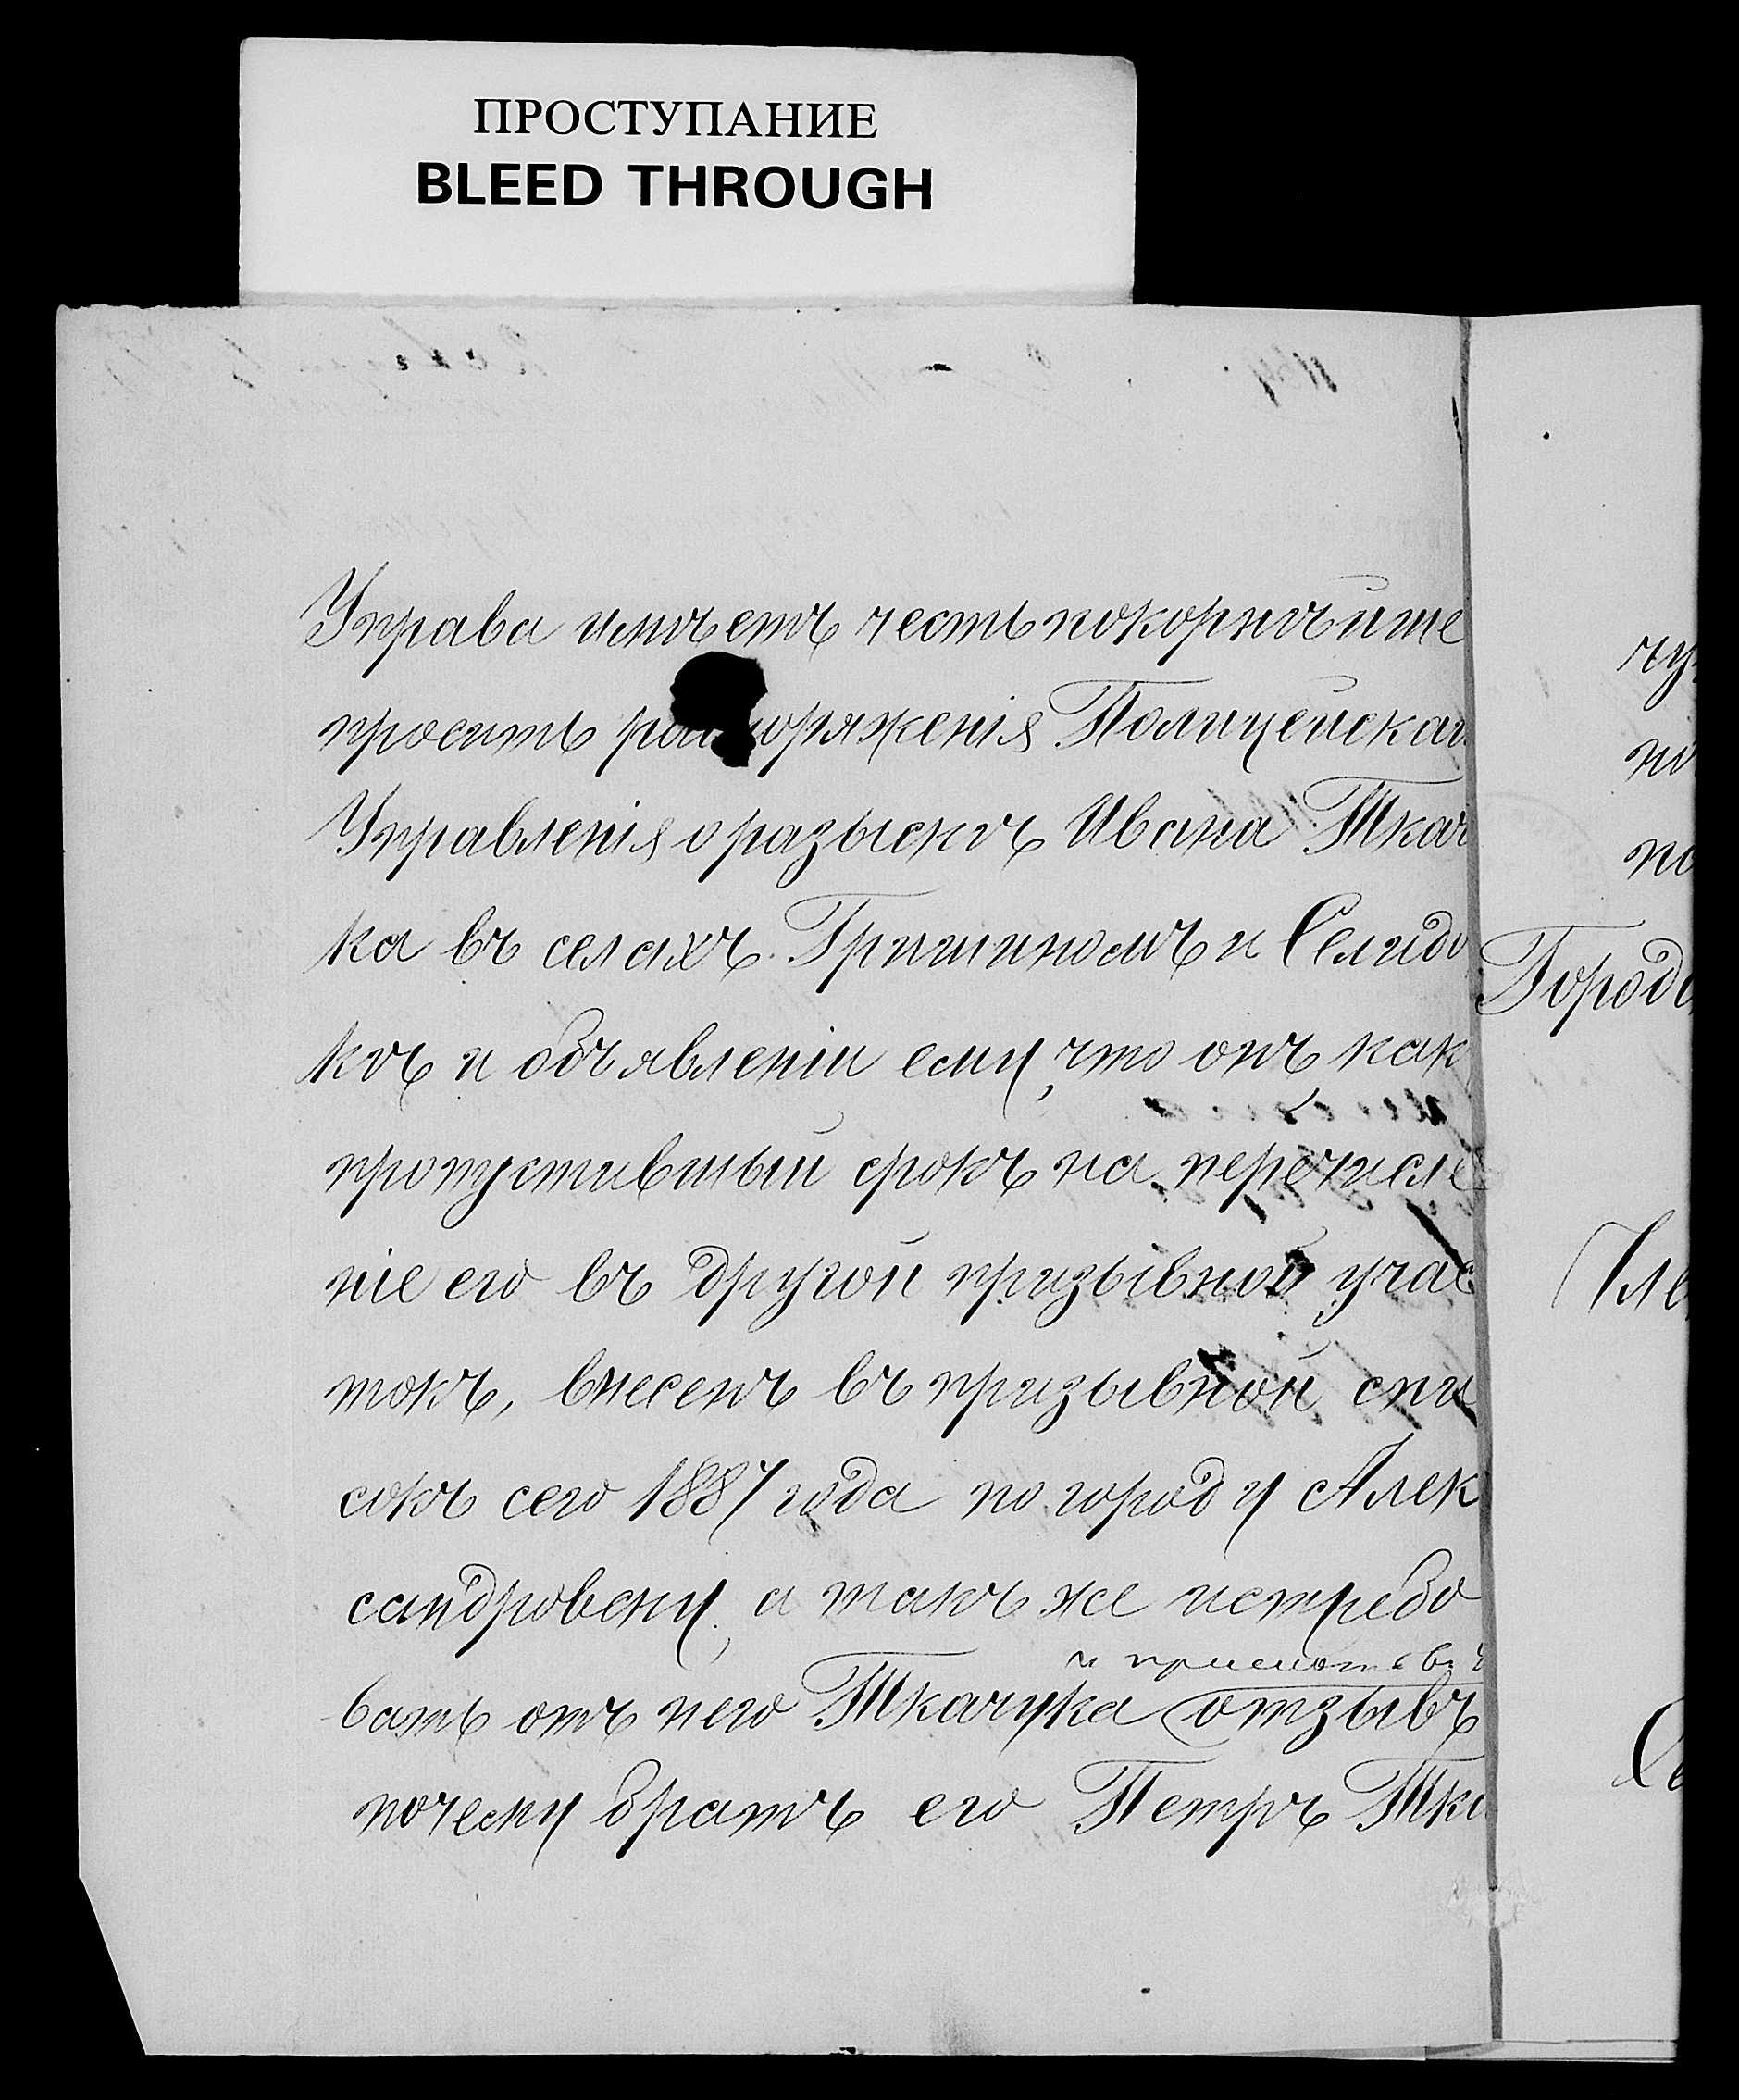 ПРОСТУПАНИЕ
BLEED THROUGH
Управа имѣетъ честь покорнѣйше
просить распоряженія Полицейскаго
Управленія о разыскѣ Ивана Ткачу
ка въ селахъ Гришиномъ и Селидов
кѣ и объявленіи ему, что онъ какъ
пропустившый срокъ на перечисле
ніе его въ другой призывной учас
токъ, внесенъ въ призывной спи
сокъ сего 1887 года по городу Алек
сандровску, а такъ же истребо
и
вать отъ него Ткачука отзывъ
почему братъ его Петръ Тка
чу
по
по
Городс
Чле
Се